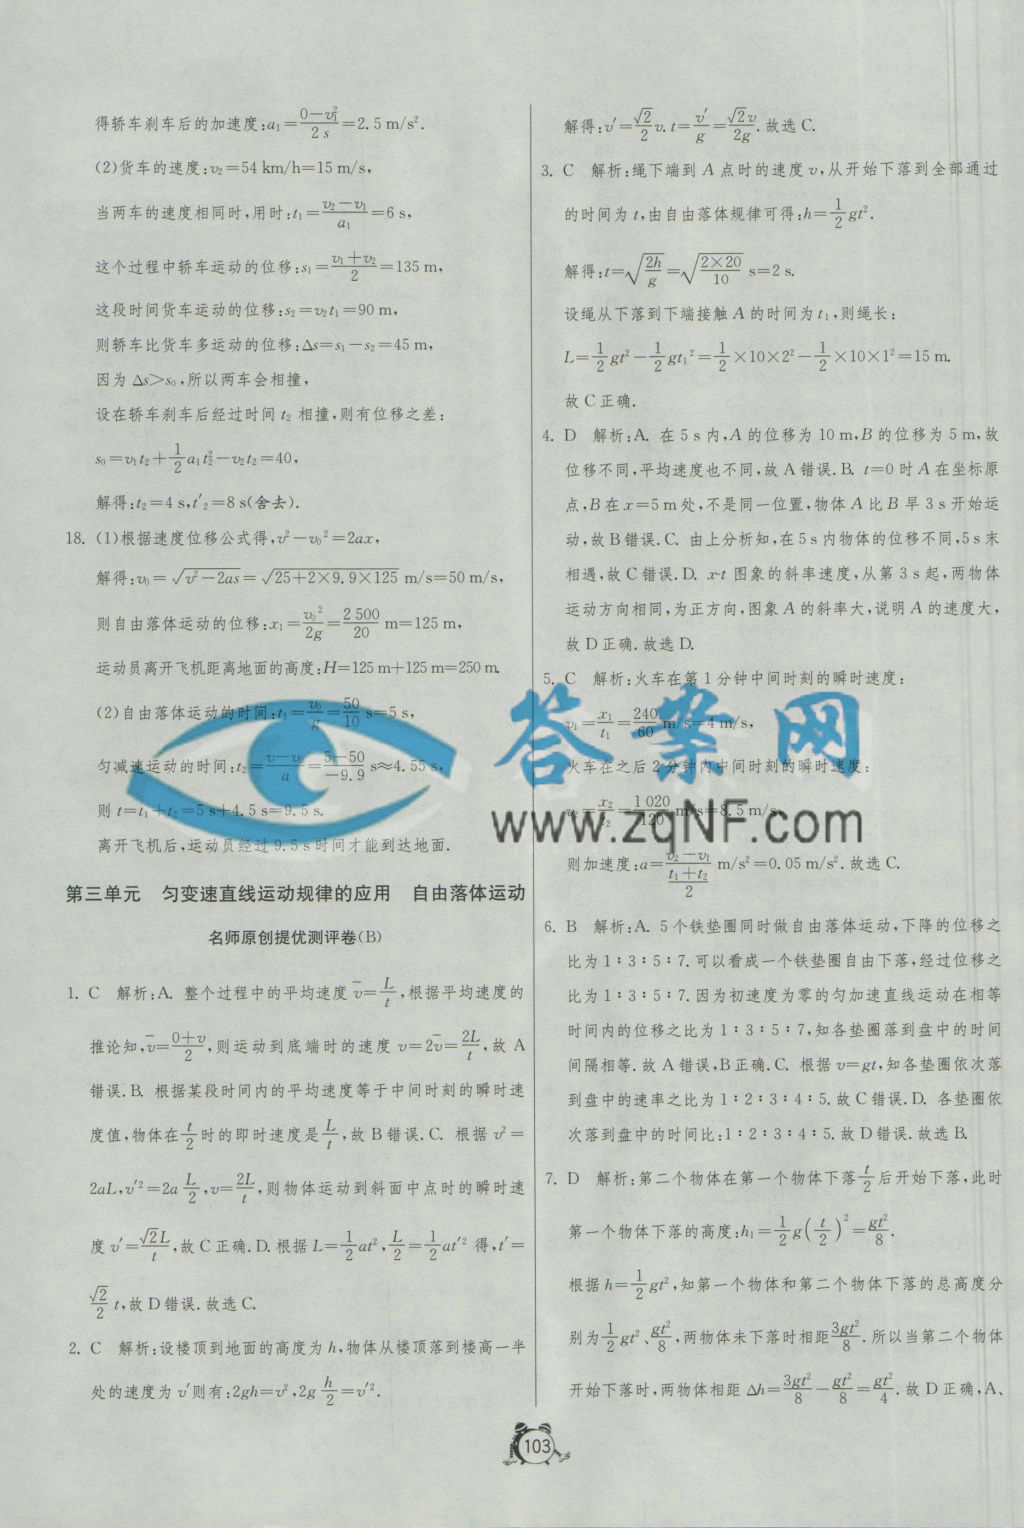 得轿车刹车后的加速度:a₁=(0-v₁²)/(2s)=2.5 m/s².
(2)货车的速度:v₂=54 km/h=15 m/s,
当两车的速度相同时,用时:t₁=(v₂-v₁)/a₁=6 s,
这个过程中轿车运动的位移:s₁=(v₁+v₂)/2=135 m,
这段时间货车运动的位移:s₂=v₂t₁=90 m,
则轿车比货车多运动的位移:Δs=s₁-s₂=45 m,
因为 Δs>s₀,所以两车会相撞,
设在轿车刹车后经过时间 t₂ 相撞,则有位移之差:
s₀=v₁t₂+½a₁t₂²-v₂t₂=40,
解得:t₂=4 s,t′₂=8 s(舍去).
18. (1)根据速度位移公式得,v²-v₀²=2ax,
解得:v₀=√(v²-2as)=√(25+2×9.9×125) m/s=50 m/s,
则自由落体运动的位移:x₁=v₀²/(2g)=2 500/20 m=125 m,
运动员离开飞机距离地面的高度:H=125 m+125 m=250 m.
(2)自由落体运动的时间:t₁=v₀/g=50/10 s=5 s,
匀减速运动的时间:t₂=(v-v₀)/a=(5-50)/(-9.9) s≈4.55 s,
则 t=t₁+t₂=5 s+4.5 s=9.5 s.
离开飞机后,运动员经过 9.5 s时间才能到达地面.
第三单元 匀变速直线运动规律的应用 自由落体运动
名师原创提优测评卷(B)
1. C 解析:A. 整个过程中的平均速度 v̄=L/t,根据平均速度的
推论知,v̄=(0+v)/2,则运动到底端时的速度 v=2v̄=2L/t,故 A
错误.B. 根据某段时间内的平均速度等于中间时刻的瞬时速
度值,物体在 t/2 时的即时速度是 L/t,故 B错误.C. 根据 v²=
2aL,v′²=2a L/2,v=2L/t,则物体运动到斜面中点时的瞬时速
度 v′=√2L/t,故 C正确.D. 根据 L=½at²,L/2=½at′² 得,t′=
√2/2 t,故 D错误.故选 C.
2. C 解析:设楼顶到地面的高度为 h,物体从楼顶落到楼高一半
处的速度为 v′则有:2gh=v²,2g h/2=v′².
解得:v′=√2/2 v.t=v′/g=√2v/2g.故选 C.
3. C 解析:绳下端到 A 点时的速度 v,从开始下落到全部通过
的时间为 t,由自由落体规律可得:h=½gt².
解得:t=√(2h/g)=√(2×20/10) s=2 s.
设绳从下落到下端接触 A 的时间为 t₁,则绳长:
L=½gt²-½gt₁²=½×10×2²-½×10×1²=15 m.
故 C正确.
4. D 解析:A. 在 5 s内,A 的位移为 10 m,B 的位移为 5 m,故
位移不同,平均速度也不同,故 A错误.B. t=0 时 A 在坐标原
点,B 在 x=5 m处,不是同一位置,物体 A 比 B 早 3 s 开始运
动,故 B错误.C. 由上分析知,在5 s内物体的位移不同,5 s末
相遇,故 C错误.D. x-t 图象的斜率速度,从第 3 s 起,两物体
运动方向相同,为正方向,图象 A 的斜率大,说明 A 的速度大,
故 D正确.故选 D.
5. C 解析:火车在第 1 分钟中间时刻的瞬时速度:
v₁=x₁/t₁=240/60 m/s=4 m/s,
火车在之后 2 分钟内中间时刻的瞬时速度:
v₂=x₂/t₂=1 020/120 m/s=8.5 m/s,
则加速度:a=(v₂-v₁)/((t₁+t₂)/2) m/s²=0.05 m/s².故选 C.
6. B 解析:A. 5 个铁垫圈同时做自由落体运动,下降的位移之
比为 1∶3∶5∶7.可以看成一个铁垫圈自由下落,经过位移之
比为 1∶3∶5∶7.因为初速度为零的匀加速直线运动在相等
时间内的位移之比为 1∶3∶5∶7,知各垫圈落到盘中的时间
间隔相等.故 A错误,B正确.C. 根据 v=gt,知各垫圈依次落
到盘中的速率之比为 1∶2∶3∶4∶5.故 C错误.D. 各垫圈依
次落到盘中的时间比:1∶2∶3∶4∶5.故 D错误.故选 B.
7. D 解析:第二个物体在第一个物体下落 t/2 后开始下落,此时
第一个物体下落的高度:h₁=½g(t/2)²=gt²/8.
根据 h=½gt²,知第一个物体和第二个物体下落的总高度分
别为 ½gt²、gt²/8,两物体未下落时相距 3gt²/8.所以当第二个物体
开始下落时,两物体相距 Δh=3gt²/8-gt²/8=gt²/4.故 D正确,A、
103
答案网
www.zqNF.com